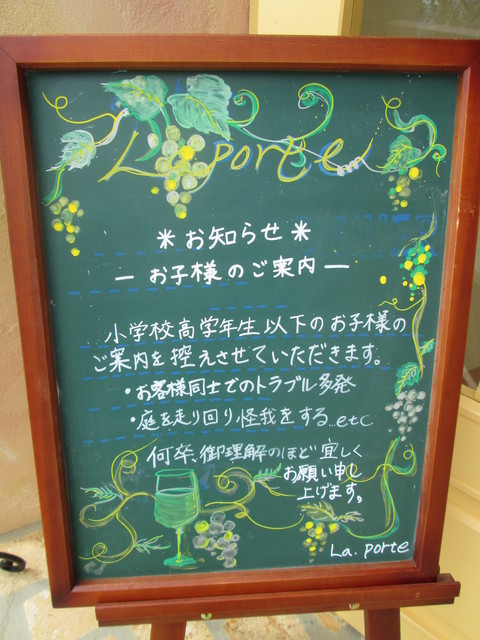 La porte
＊お知らせ＊
ーお子様のご案内ー
小学校高学年生以下のお子様の
ご案内を控えさせていただきます。
・お客様同士でのトラブル多発
・庭を走り回り怪我をする...etc
何卒、御理解のほど宜しく
お願い申し
上げます。
La. porte